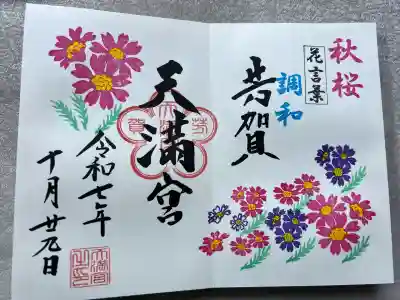 秋桜
花言葉
調和
芳賀
天満宮
令和七年
十月廿九日